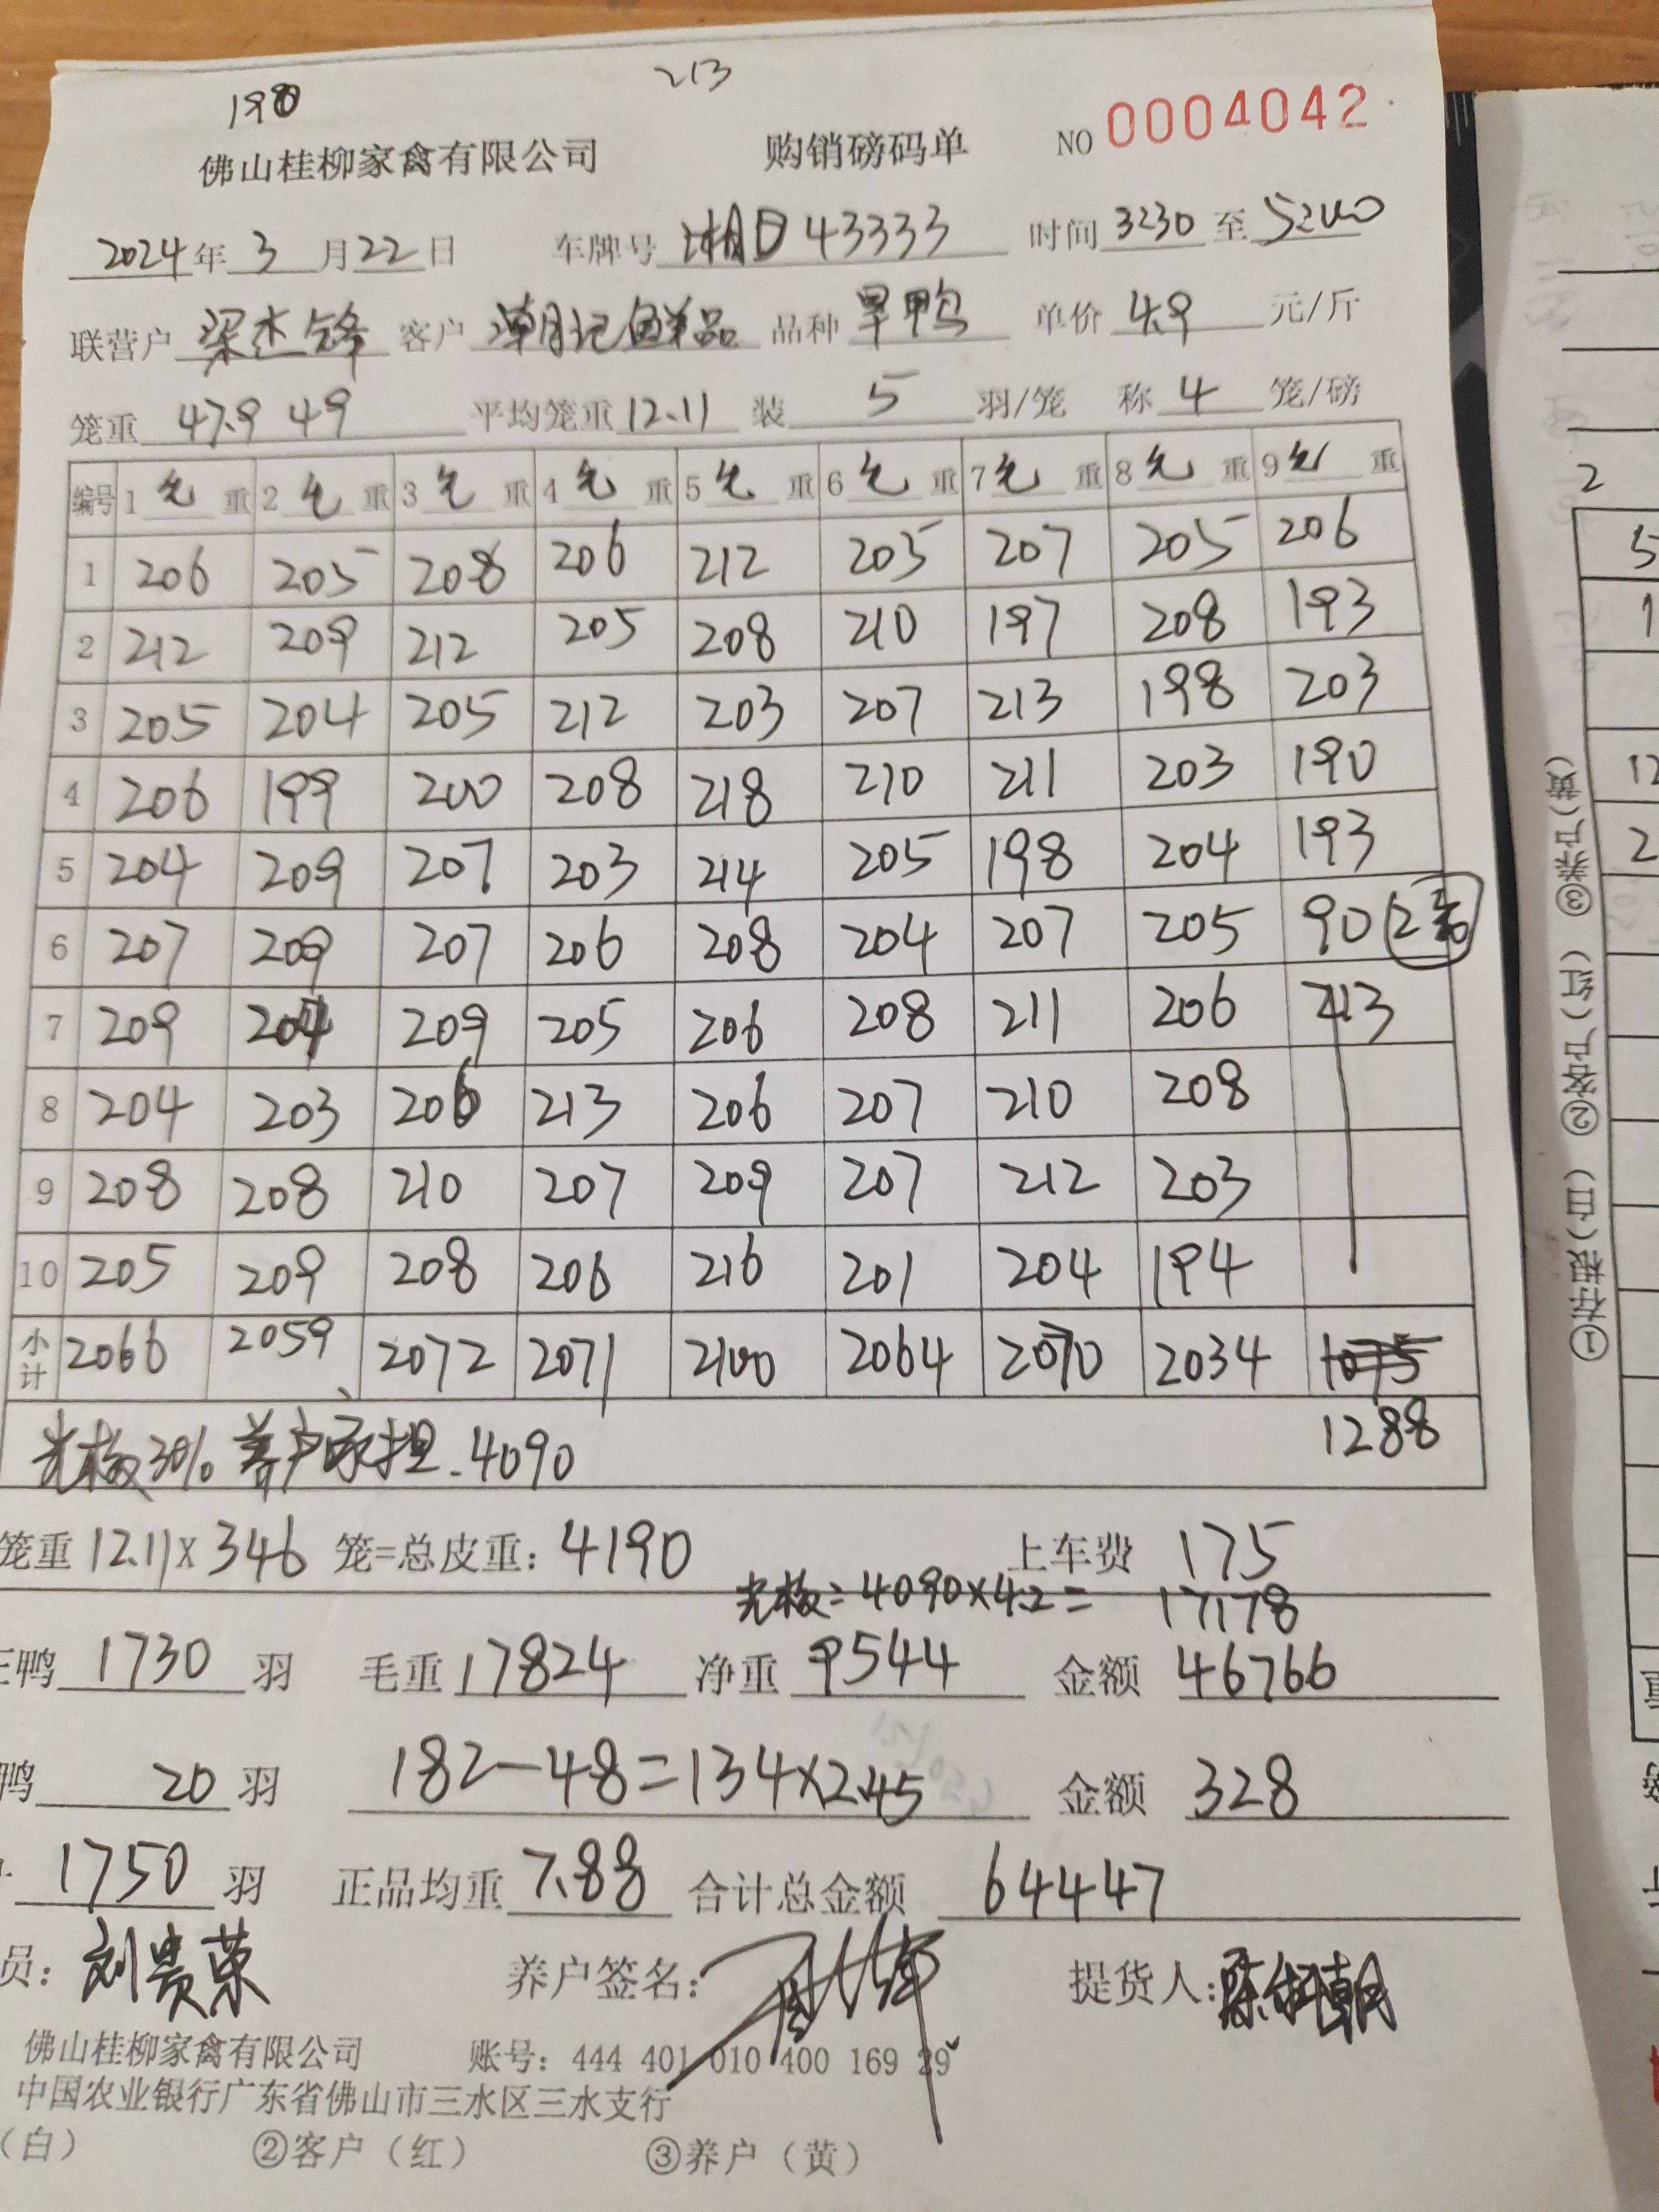 190 213
佛山桂柳家禽有限公司 购销磅码单 NO 0004042
2024年3月22日 车牌号 湘D43333 时间 3230 至 5200
联营户 梁杰锋 客户 潮记鲜品 品种 旱鸭 单价 4.9 元/斤
笼重 47.9 49 平均笼重 12.11 装 5 羽/笼 称 4 笼/磅
编号 1 毛 重 2 毛 重 3 毛 重 4 毛 重 5 毛 重 6 毛 重 7 毛 重 8 毛 重 9 毛 重
1 206 205 208 206 212 205 207 205 206
2 212 209 212 205 208 210 197 208 193
3 205 204 205 212 203 207 213 198 203
4 206 199 200 208 218 210 211 203 190
5 204 209 207 203 214 205 198 204 193
6 207 209 207 206 208 204 207 205 90
7 209 204 209 205 206 208 211 206 213
8 204 203 206 213 206 207 210 208
9 208 208 210 207 209 207 212 203
10 205 209 208 206 216 201 204 194
小计 2066 2059 2072 2071 2100 2064 2070 2034 1075
1288
光板30% 养户承担.4090
笼重 12.11x346 笼=总皮重: 4190 上车费 175
光板=4090×4.2= 17178
鸭 1730 羽 毛重 17824 净重 9544 金额 46766
鸭 20 羽 182-48=134×2.45 金额 328
1750 羽 正品均重 7.88 合计总金额 64447
员: 刘贵荣 养户签名: 提货人:
佛山桂柳家禽有限公司 账号: 444 401 010 400 169 29
中国农业银行广东省佛山市三水区三水支行
(白) ②客户(红) ③养户(黄)
①存根(白) ②客户(红) ③养户(黄)